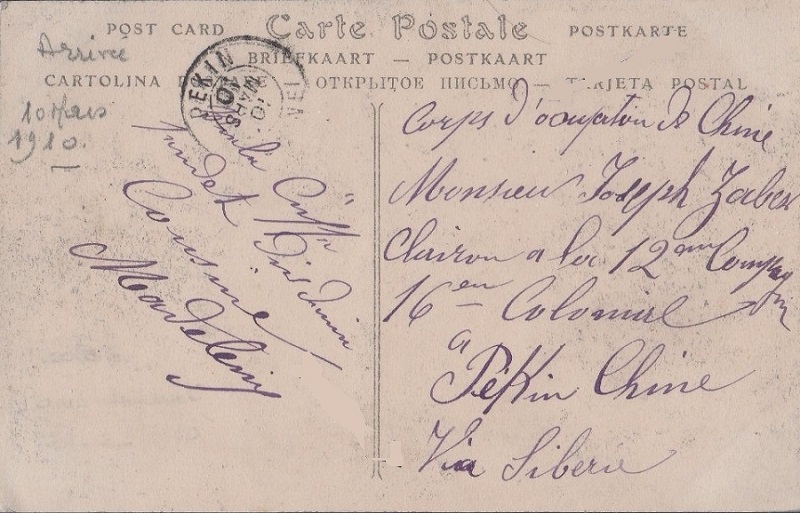 POST CARD Carte Postale POSTKARTE
BRIEFKAART — POSTKAART
CARTOLINA ОТКРЫТОЕ ПИСЬМО — POSTAL
Arrivée
10 Mars
1910.
PEKIN
10
MARS
10
Cousine
Madeleine
Corps d'occupation de Chine
Monsieur Joseph Zaber
Clairon a la 12eme Compag
16em Colonial
a
Pékin Chine
Via Siberie